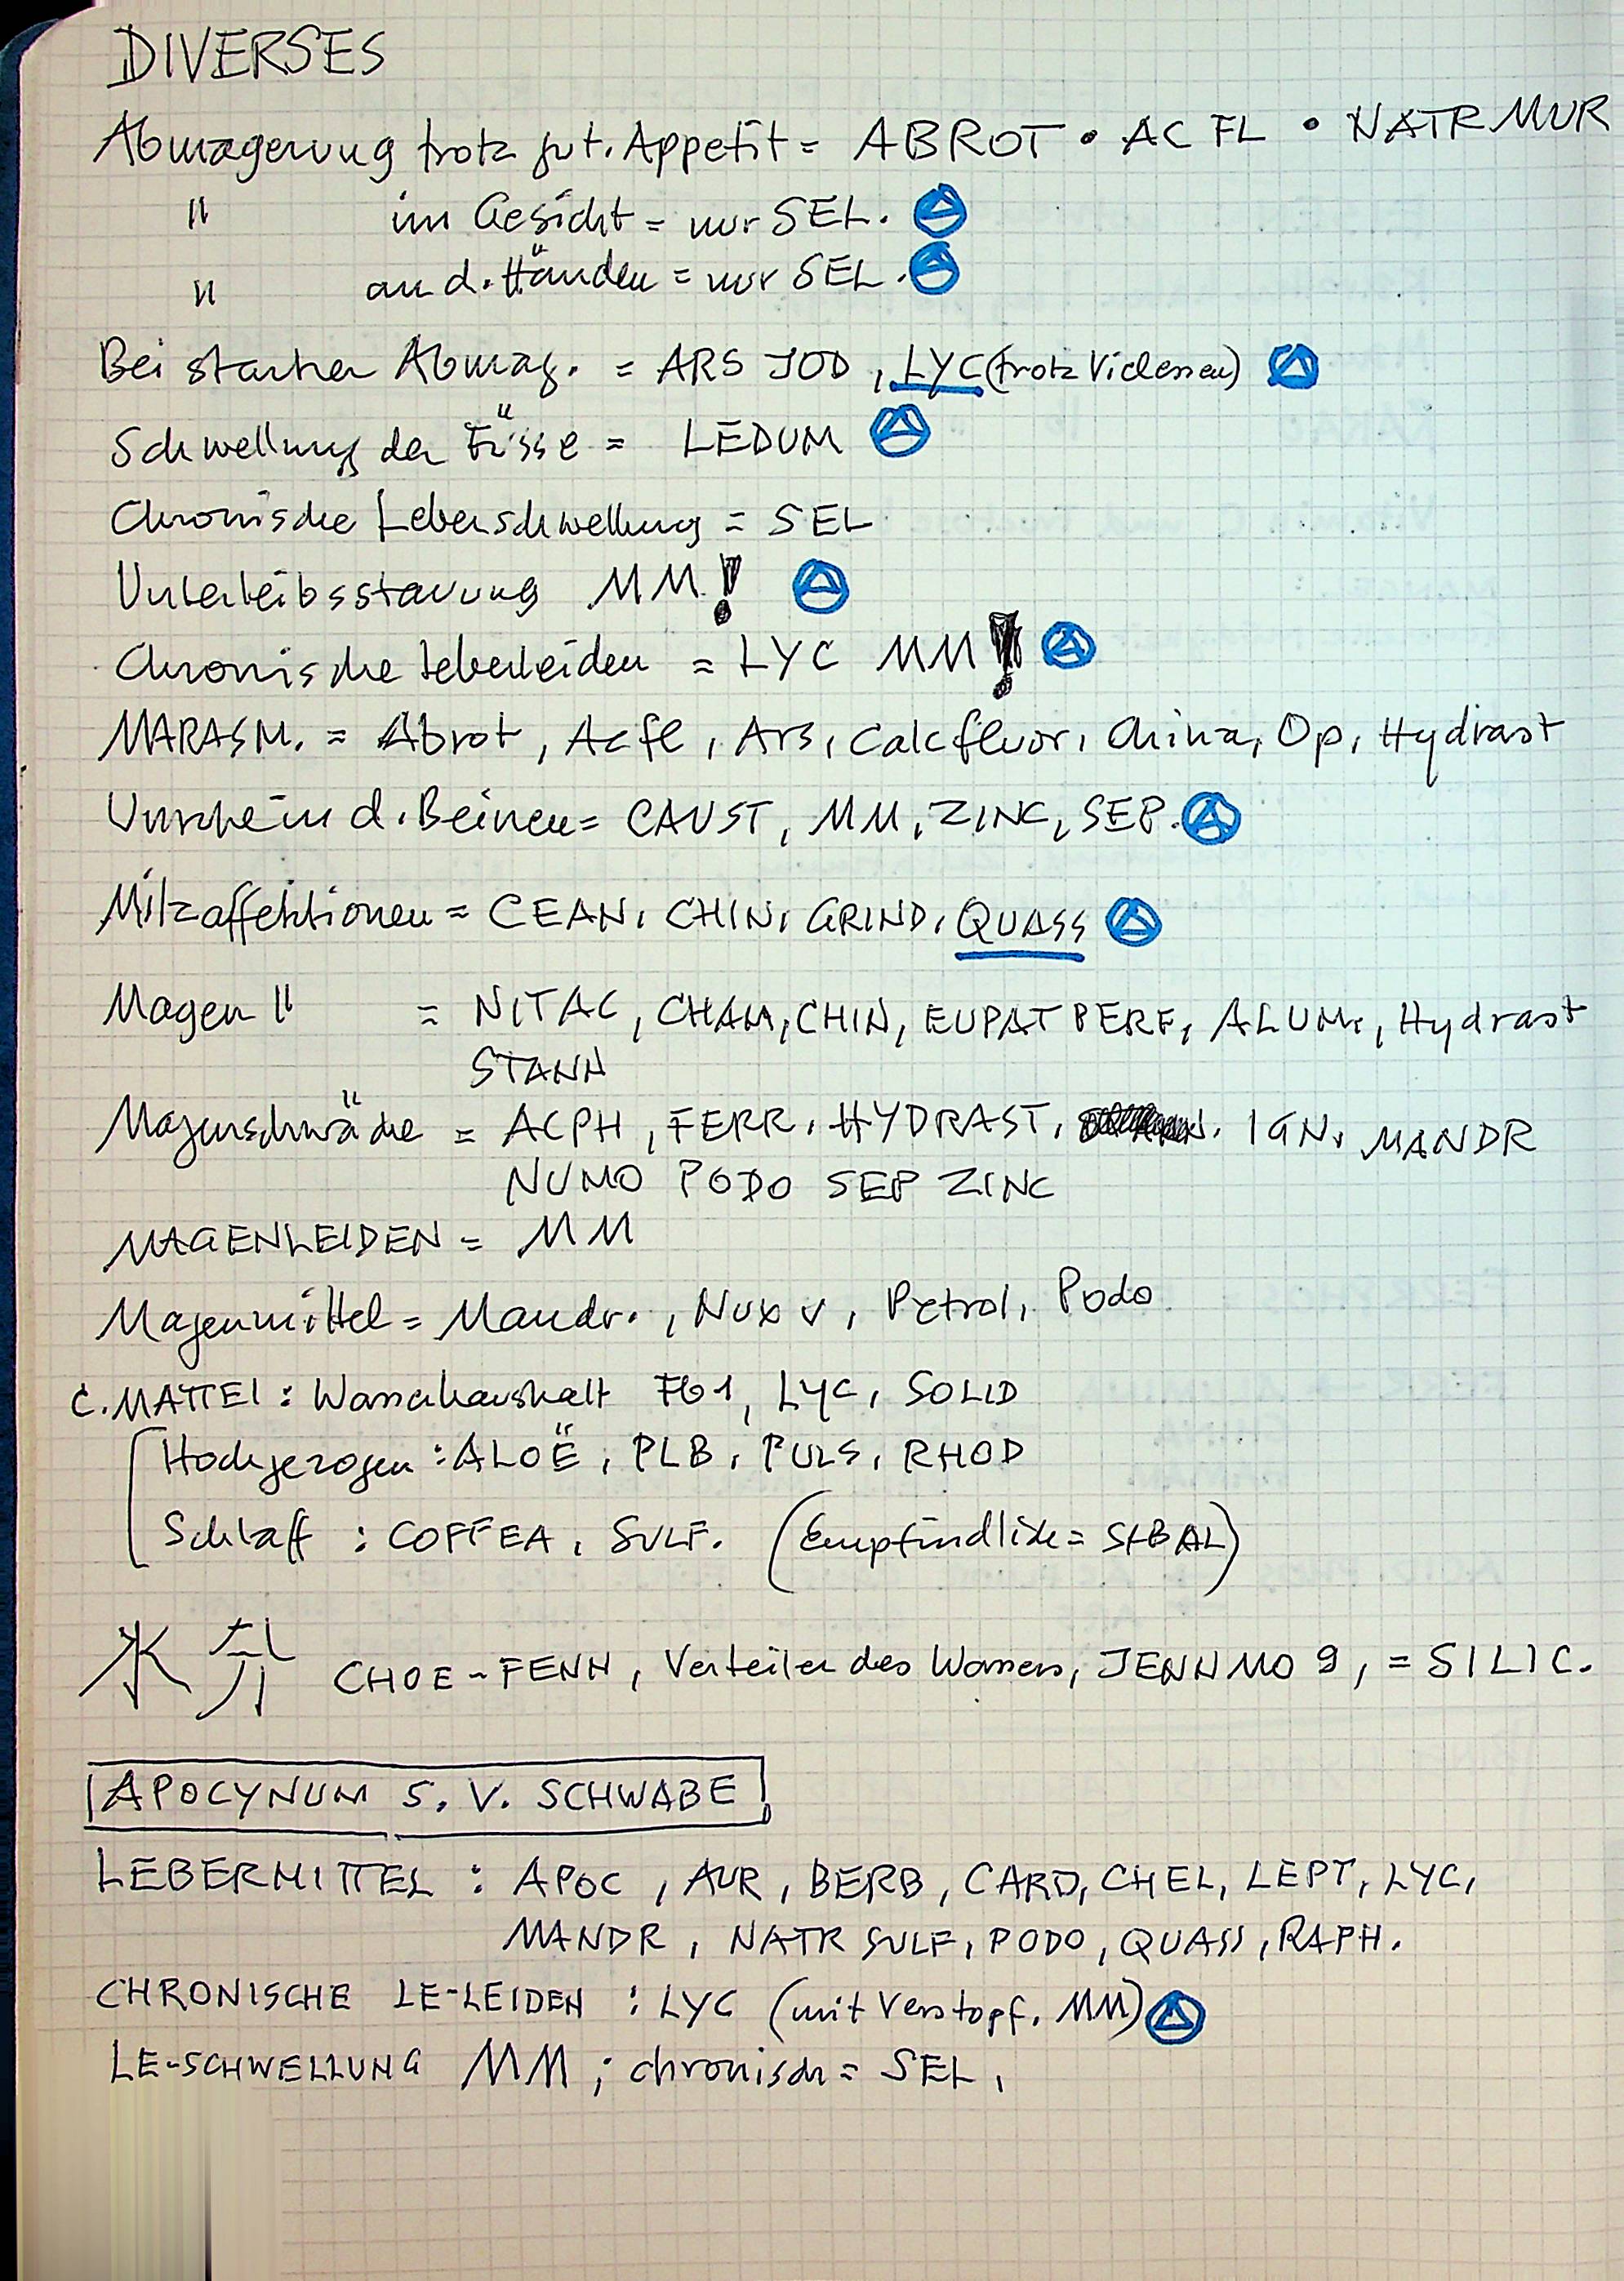 DIVERSES
Abmagerung trotz gut. Appetit = ABROT • AC FL • NATR MUR
" im Gesicht = nur SEL.
" an d. Händen = nur SEL.
Bei starker Abmag. = ARS JOD, LYC (trotz Vielessen)
Schwellung der Füsse = LEDUM
Chronische Leberschwellung = SEL
Unterleibsstauung MM!
Chronische Leberleiden = LYC MM!
MARASM. = Abrot, Acfl, Ars, Calc fluor, China, Op, Hydrast
Unruhe in d. Beinen = CAUST, MM, ZINC, SEP.
Milzaffektionen = CEAN, CHIN, GRIND, QUASS
Magen " = NITAC, CHAM, CHIN, EUPAT PERF, ALUM, Hydrast
STANN
Magenschwäche = ACPH, FERR, HYDRAST, IGN, MANDR
NUMO PODO SEP ZINC
MAGENLEIDEN = MM
Magenmittel = Mandr., Nux v, Petrol, Podo
C. MATTEI: Wasserhaushalt Fb1, LYC, SOLID
Hochgezogen: ALOË, PLB, PULS, RHOD
Schlaff: COFFEA, SULF. (Empfindliche = SABAL)
水分 CHOE-FENN, Verteiler des Wassers, JENN MO 9, = SILIC.
APOCYNUM S. V. SCHWABE!
LEBERMITTEL: APOC, AUR, BERB, CARD, CHEL, LEPT, LYC,
MANDR, NATR SULF, PODO, QUASS, RAPH.
CHRONISCHE LE-LEIDEN: LYC (mit Verstopf. MM)
LE-SCHWELLUNG MM; chronisch = SEL,